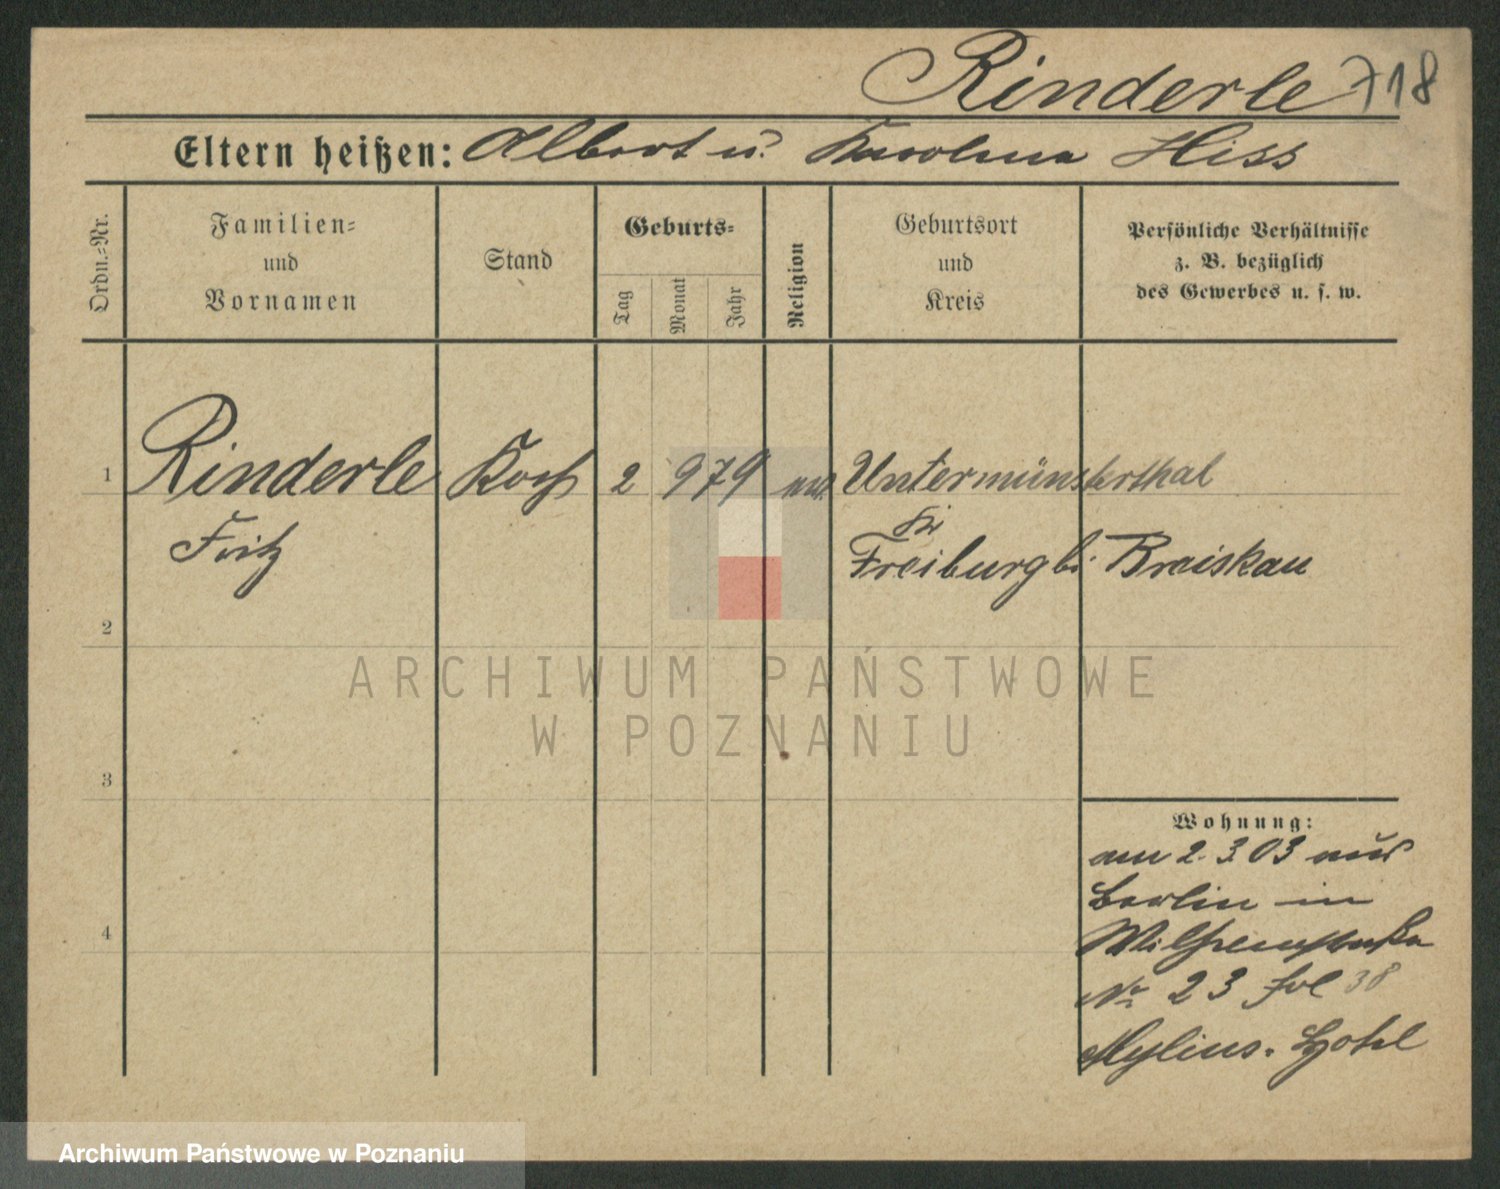 Rinderle 718
Eltern heißen: Albert u. Karolina Hiss
Ordn.-Nr.
Familien-
und
Vornamen
Stand
Geburts-
Tag
Monat
Jahr
Religion
Geburtsort
und
Kreis
Persönliche Verhältnisse
z. B. bezüglich
des Gewerbes u. s. w.
1 Rinderle Koch 2 9 79 Untermünsterthal
Fritz
Kr
Freiburg Breiskau
2
3
4
Wohnung:
am 2. 3. 03 aus
Berlin in
Wilhelmstraße
No 23 fol 38
Mylius. Hotel
ARCHIWUM PAŃSTWOWE
W POZNANIU
Archiwum Państwowe w Poznaniu